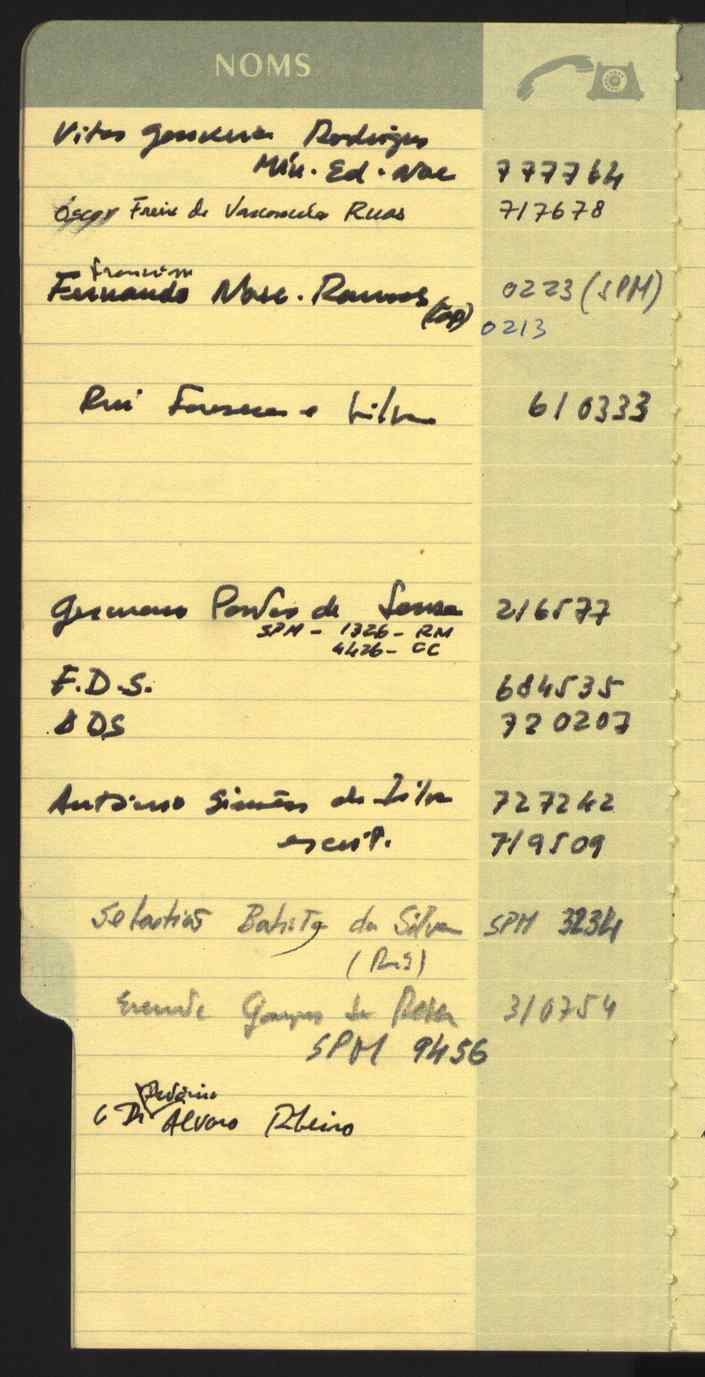 NOMS
Vitor Rodrigues
Min. Ed. Nac 777764
Óscar Freire de Vasconcelos Ruas 717678
Fernando Nasc. Ramos 0223 (SPM)
(Cap) 0213
Rui Fonseca e Silva 610333
Germano Pontes de Sousa 216577
SPM - 1326 - RM
4426 - CC
F.D.S. 684535
DS 720207
António Simões da Silva 727242
escrit. 719509
Sebastião Batista da Silva SPM 3234
Gomes da 310754
SPM 9456
Dr Alvaro Ribeiro